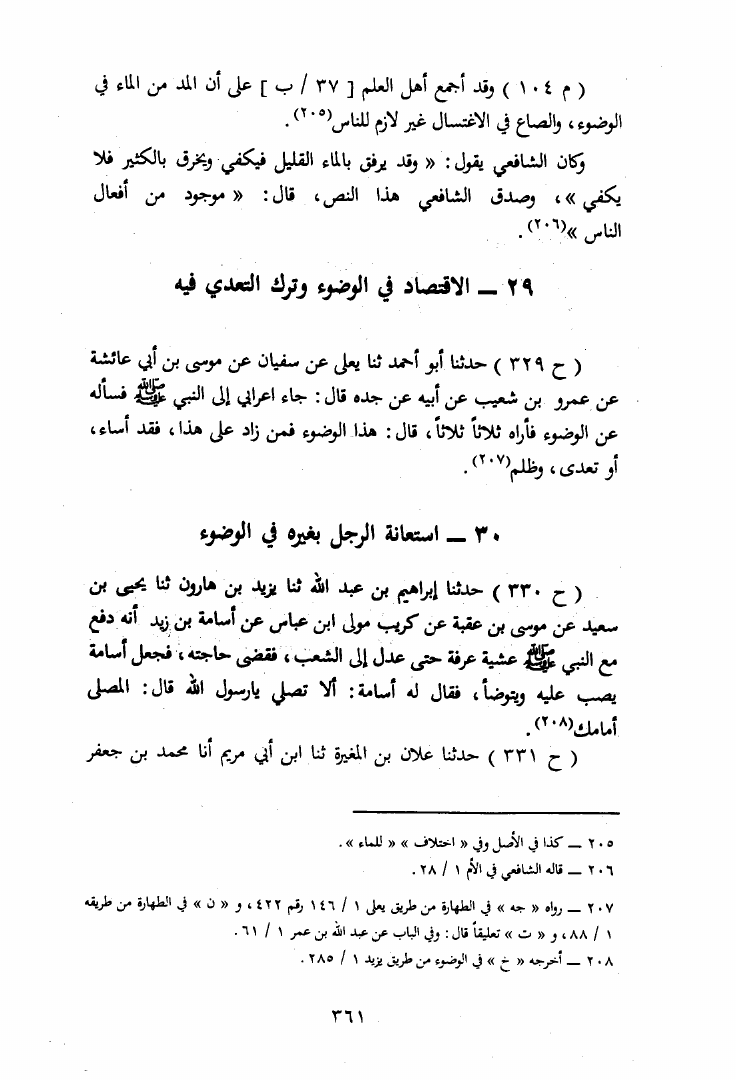 ( م ١٠٤ ) وقد أجمع أهل العلم [ ٣٧ / ب ] على أن المد من الماء في
الوضوء، والصاع في الاغتسال غير لازم للناس(٢٠٥).
وكان الشافعي يقول: « وقد يرفق بالماء القليل فيكفي ويخرق بالكثير فلا
يكفي »، وصدق الشافعي هذا النص، قال: « موجود من أفعال
الناس »(٢٠٦).
٢٩ ــ الاقتصاد في الوضوء وترك التعدي فيه
( ح ٣٢٩ ) حدثنا أبو أحمد ثنا يعلى عن سفيان عن موسى بن أبي عائشة
عن عمرو بن شعيب عن أبيه عن جده قال: جاء اعرابي إلى النبي ﷺ فسأله
عن الوضوء فأراه ثلاثاً ثلاثاً، قال: هذا الوضوء فمن زاد على هذا، فقد أساء،
أو تعدى، وظلم(٢٠٧).
٣٠ ــ استعانة الرجل بغيره في الوضوء
( ح ٣٣٠ ) حدثنا إبراهيم بن عبد الله ثنا يزيد بن هارون ثنا يحيى بن
سعيد عن موسى بن عقبة عن كريب مولى ابن عباس عن أسامة بن زيد أنه دفع
مع النبي ﷺ عشية عرفة حتى عدل إلى الشعب، فقضى حاجته، فجعل أسامة
يصب عليه ويتوضأ، فقال له أسامة: ألا تصلي يارسول الله قال: المصلى
أمامك(٢٠٨).
( ح ٣٣١ ) حدثنا علان بن المغيرة ثنا ابن أبي مريم أنا محمد بن جعفر
٢٠٥ ــ كذا في الأصل وفي « اختلاف » « للماء ».
٢٠٦ ــ قاله الشافعي في الأم ١ / ٢٨.
٢٠٧ ــ رواه « جه » في الطهارة من طريق يعلى ١ / ١٤٦ رقم ٤٢٢، و « ن » في الطهارة من طريقه
١ / ٨٨، و « ت » تعليقاً قال: وفي الباب عن عبد الله بن عمر ١ / ٦١.
٢٠٨ ــ أخرجه « خ » في الوضوء من طريق يزيد ١ / ٢٨٥.
٣٦١